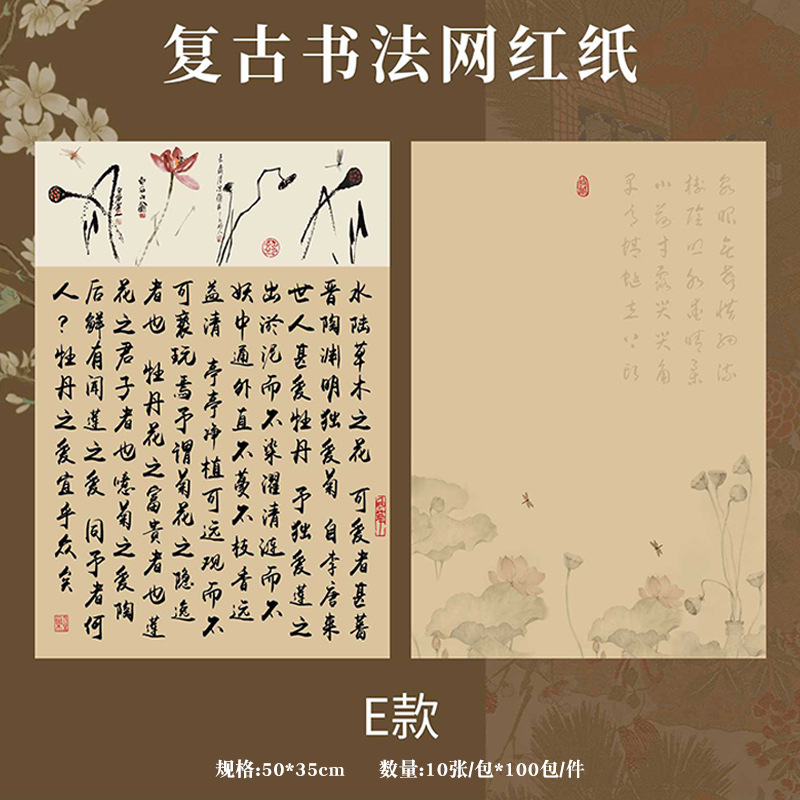 复古书法网红纸
水陆草木之花 可爱者甚蕃
晋陶渊明独爱菊 自李唐来
世人甚爱牡丹 予独爱莲之
出淤泥而不染濯清涟而不
妖中通外直不蔓不枝香远
益清 亭亭净植可远观而不
可亵玩焉予谓菊花之隐逸
者也 牡丹花之富贵者也莲
花之君子者也噫菊之爱陶
后鲜有闻莲之爱 同予者何
人？牡丹之爱宜乎众矣
泉眼无声惜细流
树阴照水爱晴柔
小荷才露尖尖角
早有蜻蜓立上头
E款
规格:50*35cm 数量:10张/包*100包/件